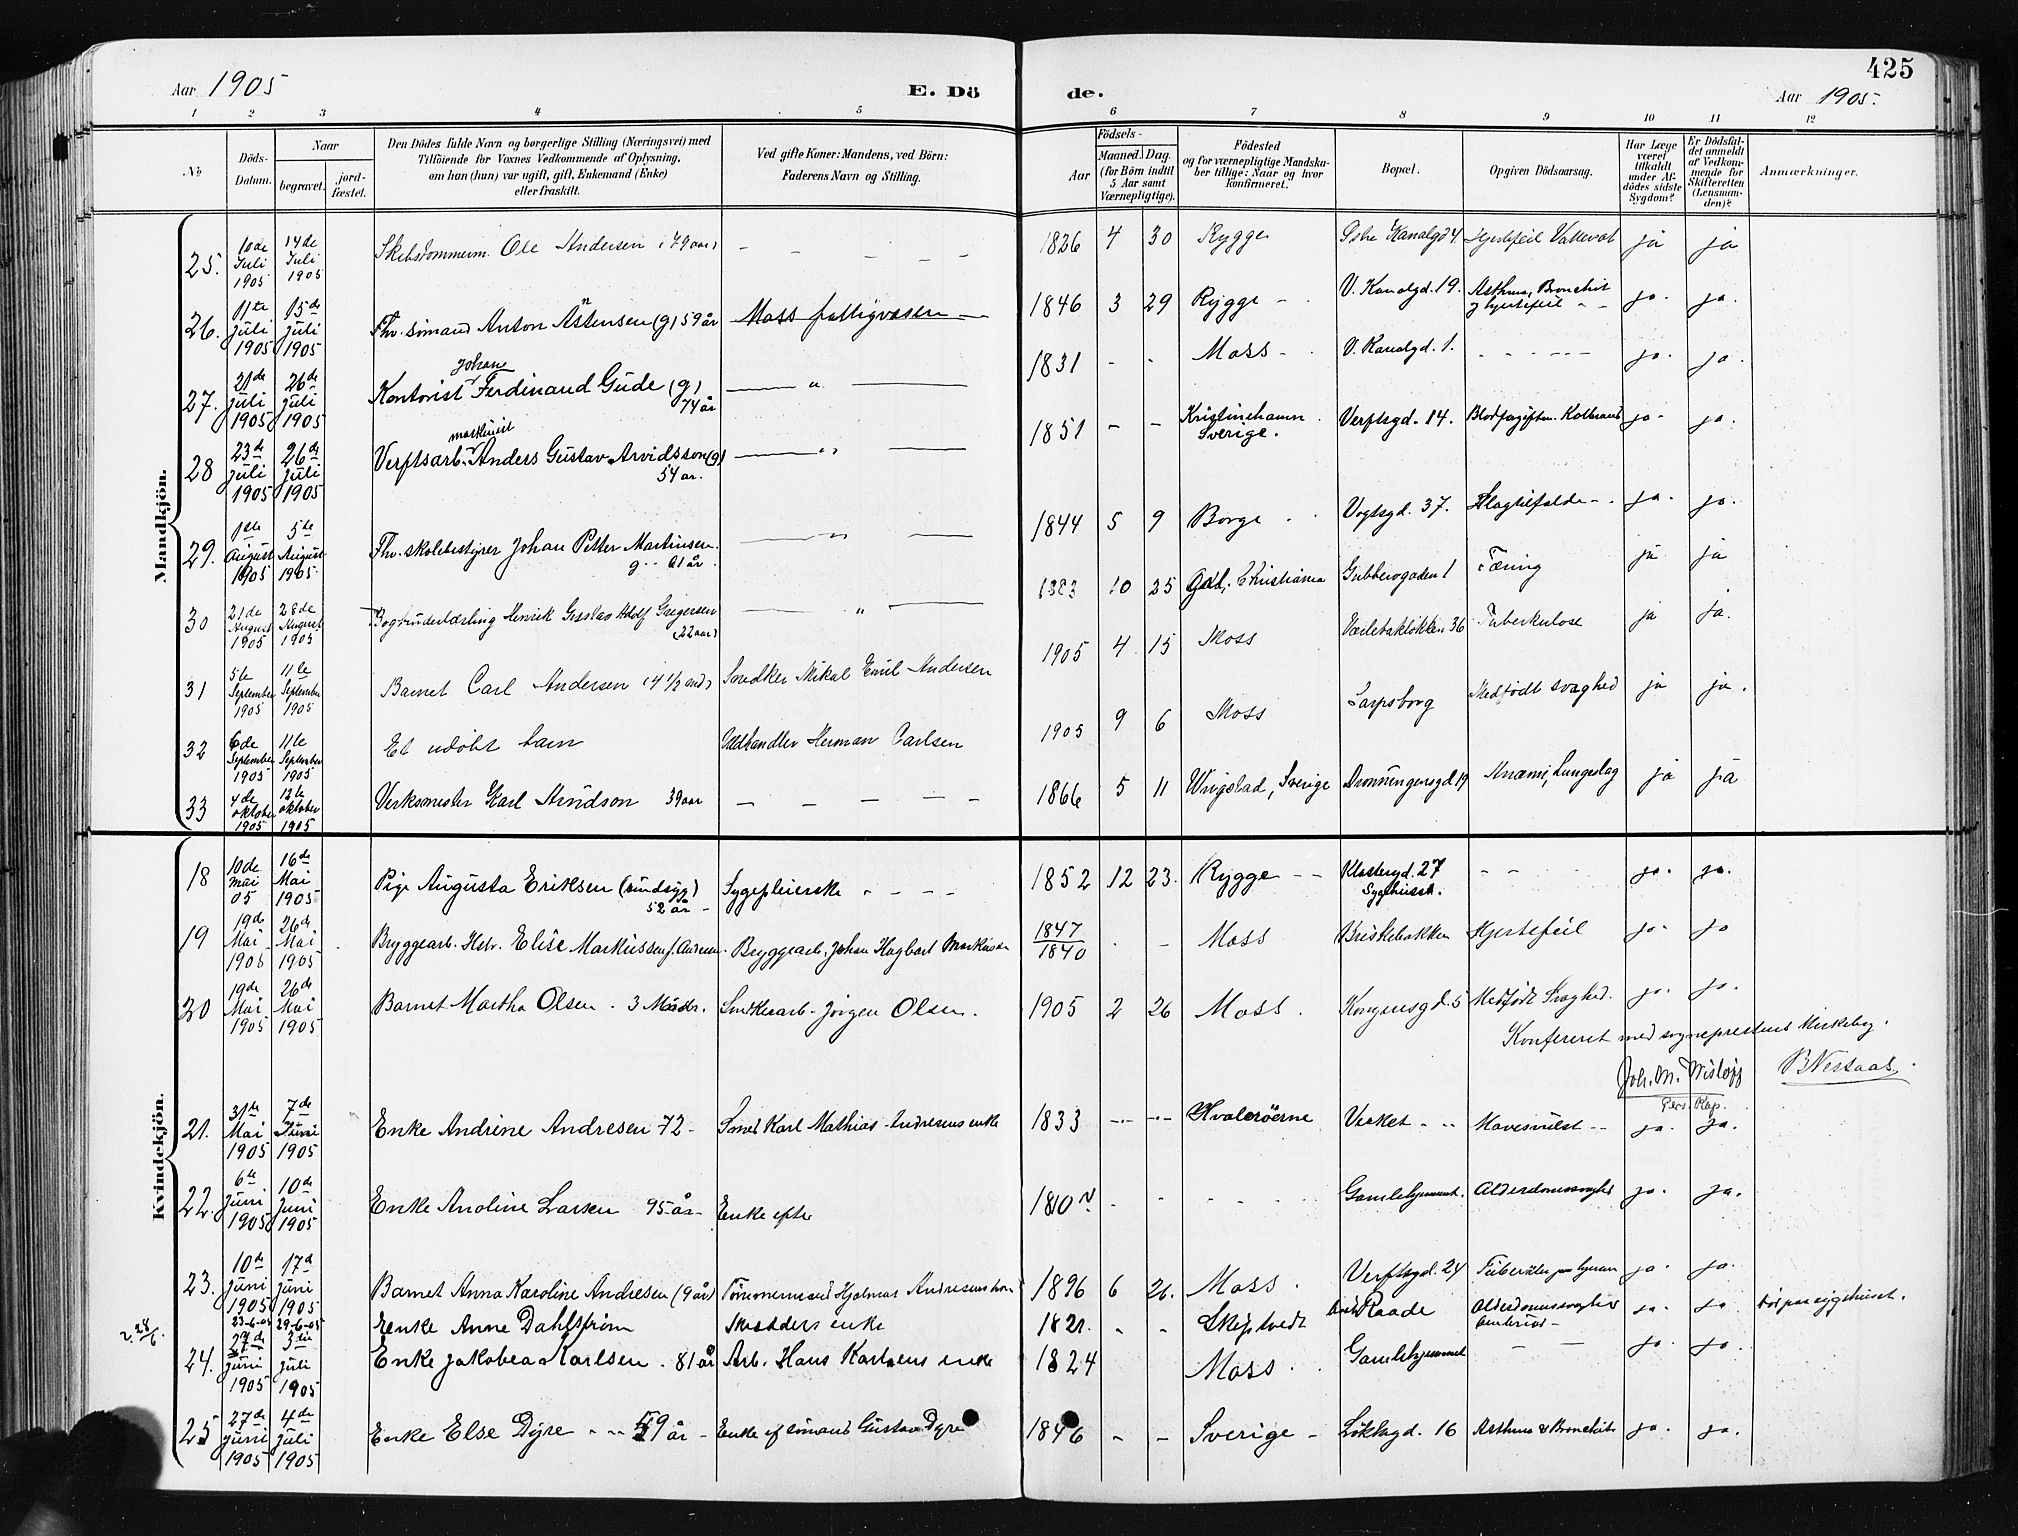 425
Aar 1905
E. Dö
de.
Aar 1905.
1 2 3 4 5 6 7 8 9 10 11 12
No
Döds-
Datum.
Naar
begravet.
jord-
fæstet.
Den Dödes fulde Navn og borgerlige Stilling (Næringsvei) med
Tilföiende for Voxnes Vedkommende af Oplysning,
om han (hun) var ugift, gift, Enkemand (Enke)
eller fraskilt.
Ved gifte Koner: Mandens, ved Börn:
Faderens Navn og Stilling.
Födsels-
Aar
Maaned. Dag.
(for Börn indtil
5 Aar samt
Værnepligtige).
Födested
og for værnepligtige Mandska-
ber tillige: Naar og hvor
konfirmeret.
Bopæl.
Opgiven Dödsaarsag.
Har Læge
været
tilkaldt
under Af-
dödes sidste
Sygdom?
Er Dödsfal-
det anmeldt
af Vedkom-
mende for
Skifteretten
(Lensman-
den)?
Anmærkninger.
Mandkjön.
25. 10de Juli 1905 14de Juli 1905 Ole Andersen (79 aar) - 1826 4 30 Rygge Kanalgd 4 Hjertefeil ja ja
26. 11te juli 1905 15de juli 1905 Fhv. sömand Anton Astensen (g) 59 år Moss fattigvæsen 1846 3 29 Rygge - V. Kanalgd. 19. Asthma, Bronchit og hjertefeil ja. ja.
27. 21de juli 1905 26de juli 1905 Kontorist Johan Ferdinand Gude (g) 74 år " 1831 - - Moss - V. Kanalgd. 1. - ja. ja.
28 23de juli 1905 26de juli 1905 Verftsarb. maskinist Anders Gustav Arvidsson (g) 54 år. " 1851 - - Kristinehamn Sverige. Verftsgd. 14. Blodforgiftn. Kolbrand ja. ja.
29. 1ste August 1905 5te August 1905 Fhv. skolebestyrer Johan Petter Martinsen. g. 61 år. " 1844 5 9 Borge Vogtsgd. 37. Slagtilfælde ja. ja.
30 21de August 1905 28de August 1905 Henrik Gustav Adolf Gregersen (22 aar) " 1883 10 25 Christiania Gubberogaden 1 Tæring ja ja
31 5te September 1905 11te September 1905 Barnet Carl Andersen (4 1/2 md) Snedker Mikal Emil Andersen 1905 4 15 Moss Tuberkulose ja ja.
32 6de September 1905 11te September 1905 Et udöbt barn Uldhandler Herman Carlsen 1905 9 6 Moss Sarpsborg Medfödt svaghed ja ja.
33 4de oktober 1905 12te oktober 1905 Verksmester Karl Arndson 39 aar - 1866 5 11 Wrigstad, Sverige Dronningensgd 19 Anæmi, Lungeslag ja ja
Kvindekjön.
18 10de Mai 05 16de Mai 1905 Pige Augusta Eriksen (sindsyg) 52 år - Sygepleierske 1852 12 23. Rygge - Klostergd. 27 Sygehuset. - ja. ja.
19 19de Mai 1905 26de Mai 1905 Bryggearb. Hstr. Elise Markussen f. Andersen. Bryggearb. Johan Hagbart Markussen 1847 1840 - Moss Briskebakken Hjertefeil ja. ja
20 19de Mai 1905 26de Mai 1905 Barnet Martha Olsen. 3 Mndr. Snedkerarb. Jörgen Olsen. 1905 2 26 Moss. Kongensgd. 5 Medfödt Svaghed. ja. ja.
Konfereret med sogneprestens
Joh. M. Wisløff
Pers. Kap.
21. 31te Mai 1905 7de Juni 1905 Enke Andrine Andresen 72 - Smed Karl Mathias Andresens enke 1833 - Hvaleröerne Verket Mavesvulst ja. ja.
22. 6te Juni 1905 10de Juni 1905 Enke Anoline Larsen 95 år - Enke efter 1810 - Gamlehjemmet. Alderdomssvaghed ja. ja.
23. 10de juni 1905 17de juni 1905 Barnet Anna Karoline Andresen (9 år) Tömmermand Hjalmar Andresens barn 1896 6 26. Moss. Verftsgd. 24 ja. ja.
23-6-05 29-6-05 Enke Anne Dahlström Skrædders enke 1821. - - Skiptvedt Raade Alderdomssvaghed ja. ja. Död paa sygehuset.
24. 27de juni 1905 3die juli 1905 Enke Jakobea Karlsen. 81 år Arb. Hans Karlsens enke 1824 Moss. Gamlehjemmet - ja. ja.
25 27de juni 1905 4de juli 1905 Enke Else Dyre 59 år - Enke af sömand Gustav Dyre 1846 - - Sverige - 16 Asthma & Bronchit ja. ja.